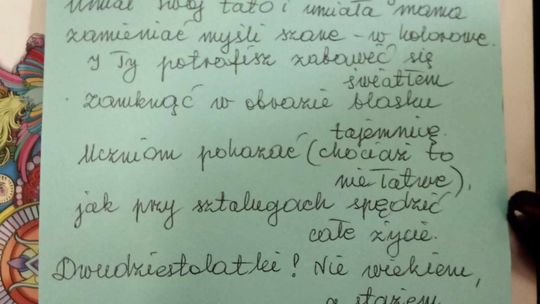 umiał swój tato i umiała mama
zamieniać myśli szare – w kolorowe.
I Ty potrafisz zabawić się
światłem
zamknąć w obrazie blasku
tajemnicę.
Uczniom pokazać (chociaż to
nie łatwe),
jak przy sztalugach spędzić
całe życie.
Dwudziestolatki! Nie wiekiem,
a stażem